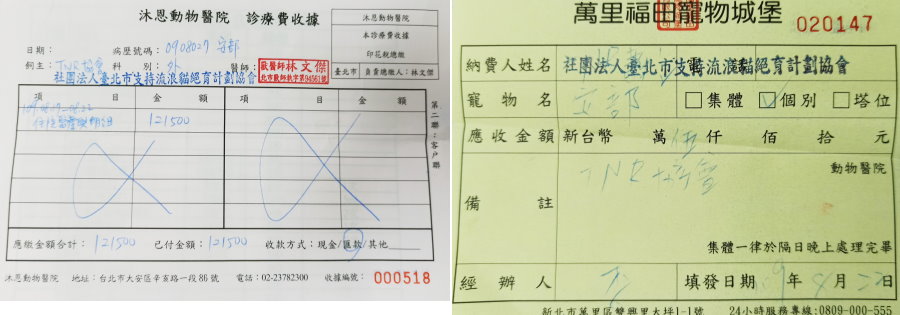 沐恩動物醫院 診療費收據
沐恩動物醫院
本診療費收據
印花稅總繳
臺北市 負責總繳人:林文傑
日期:
病歷號碼:0908027 安部
飼主:TNR協會 科別:外 醫師:
獸醫師林文傑
社團法人臺北市支持流浪貓絕育計劃協會
項 目 金 額 項 目 金 額
121500
第二聯:客戶聯
應繳金額合計:121500 已付金額:121500 收款方式:現金/匯款/其他
沐恩動物醫院 地址:台北市大安區辛亥路一段86號 電話:02-23782300 收據編號:000518
萬里福田寵物城堡
020147
納費人姓名 社團法人臺北市支持流浪貓絕育計劃協會
寵物名 安部 集體 個別 塔位
應收金額 新台幣 萬 伍 仟 佰 拾 元
備註 TNR協會
動物醫院
集體一律於隔日晚上處理完畢
經辦人 填發日期 年 月 日
新北市萬里區雙興里大坪1-1號 24小時服務專線:0809-000-555